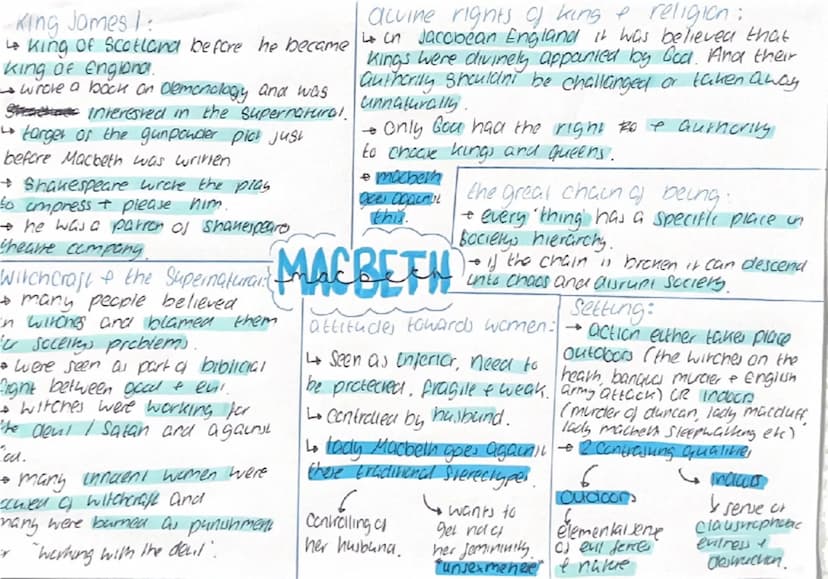 King James 1:
↳ King of Scotland before he became
King of England.
→ wrote a book on demonology and was
interested in the supernatural.
↳ target of the gunpowder plot just
before Macbeth was written
→ Shakespeare wrote the play
to impress + please him.
→ he was a patron of Shakespeare
theatre company.
divine rights of king + religion:
↳ in Jacobean England it was believed that
kings were divinely appointed by God. And their
authority shouldnt be challanged or taken away
unnaturally.
→ Only God had the right + authority
to choose kings and queens.
→ macbeth
goes against
this.
the great chain of being:
→ every 'thing' has a specific place in
societys hierarchy.
→ if the chain is broken it can descend
into chaos and disrupt society.
MACBETH
macbeth
Witchcraft + the Supernatural:
→ many people believed
in witches and blamed them
for societys problems.
→ were seen as part of biblical
fight between good + evil.
→ witches were working for
the devil / Satan and against
God.
→ many innocent women were
accused of witchcraft and
many were burned as punishment
"working with the devil".
attitudes towards women:
↳ Seen as inferior, need to
be protected, fragile + weak.
↳ controlled by husband.
↳ lady Macbeth goes against
these traditional stereotypes.
controlling of
her husband.
wants to
get rid of
her femininity
"unsex me here"
Setting:
→ action either takes place
outdoors (the witches on the
heath, banquos murder + English
army attack) OR indoors
(murder of duncan, lady macduff,
lady macbeth sleepwalking etc)
→ 2 contrasting qualities
outdoors
elemental sense
of evil forces
+ nature
indoors
sense of
claustrophobic
evilness +
destruction.